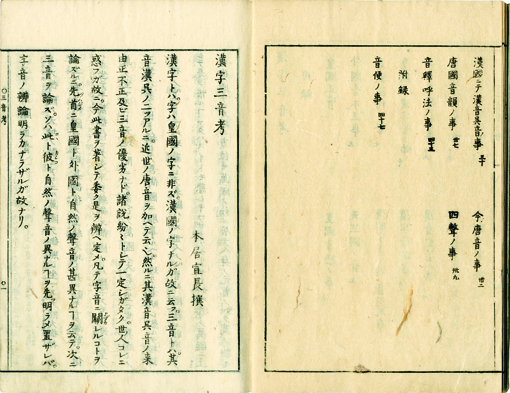 漢國ニテ漢音呉音ノ事
今唐音ノ事
唐國音韻ノ事
四聲ノ事
音釋呼法ノ事
附録
音便ノ事 四十七
漢字三音考
本居宣長撰
漢字トハ字ハ皇國ノ字ニ非ズ漢國ノ字ナルガ故ニ云フ三音トハ其
音漢呉ノ二ツアルニ近世ノ唐音ヲ加ヘテ云也然ルニ其漢音呉音ノ來
由正不正及ビ三音ノ優劣ナド諸説紛々トシテ一定シガタク世人コレニ
惑フガ故ニ今此書ヲ著シテ委ク是ヲ辨ヘ定メ凡テ字音ニ關レルコトヲ
論ズルニ先首ニ皇國ト外國ト自然ノ聲音ノ甚異ナルヿヲ云テ次ニ
三音ヲ論ズソハ此ト彼ト自然ノ聲音ノ異ナルヿヲ先明ラメ置ザレバ
字音ノ辨論明ラカナラザルガ故ナリ
三音考